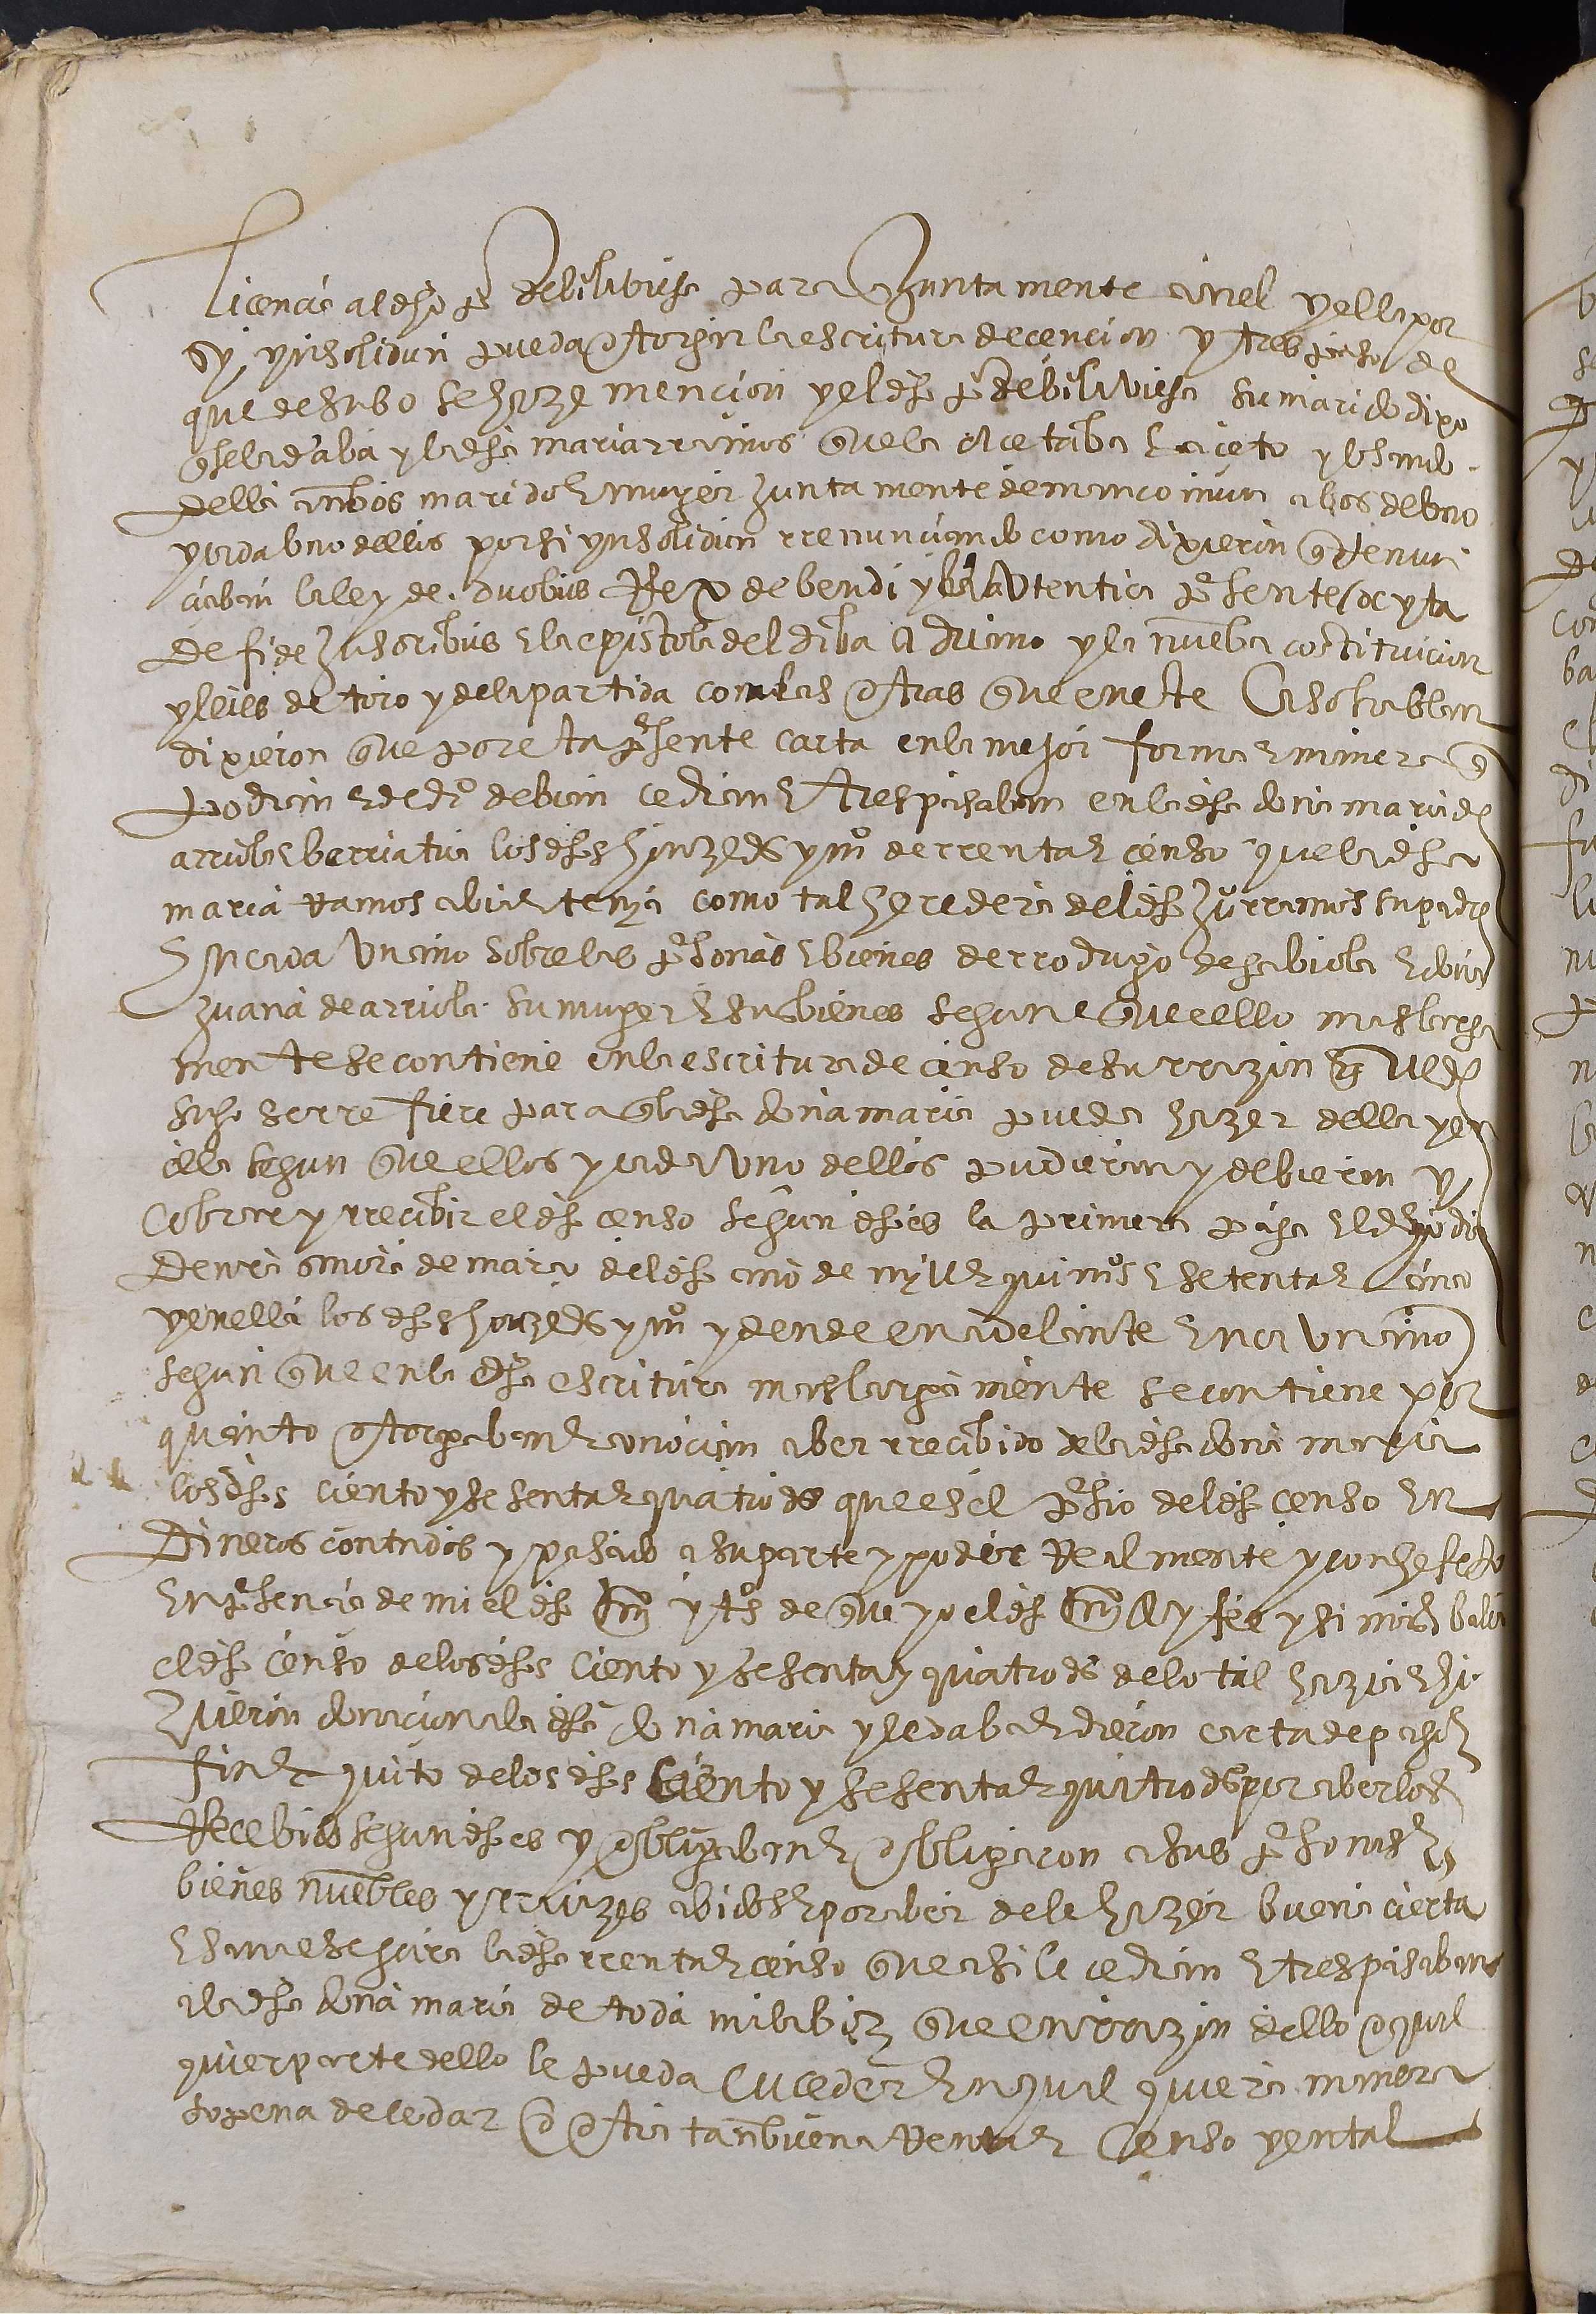 licencia al dho po de bilaviçiosa para q juntamente con el y ella por
sy ynsolidun pueda otorgar la escritura de cencion y trespaso de
que de suso se haze mencion y el dho po de bilaviçiosa su marido dixo
q se la daba y la dha maria rramos que la acetaba e aceto y husando
della anbos marido e muger juntamente de mancomun a boz de uno
y cada uno dellos por si ynsolidun rrenunciando como dixieron q rrenun
ciaban la ley de duobus Rex debendi y la autentica presente oc yta
de fide jusoribus e la epistola del diba adriano y la nueba costituicion
y leies de toro y de la partida con las otras que en este caso hablan
dixieron que por esta presente carta en la mejor forma e manera q
podian e de dro debian cedian e trespasaban en la dha dona maria de
arriola berriatua los dhos honze ds y mo de rrenta e censo que la dha
maria Ramos abia e tenya como tal heredera del dho ju rramos su padre
en cada un ano sobre las personas e bienes de rrodrigo de gabiola e dona
juana de arriola su muger e sus bienes segund que ello mas larga
mente se contiene en la escritura de censo de su rrazon q de
suso se rrefiere para q la dha dona maria pueda hazer della y en
ella segun que ellos y cada uno dellos pudieran y debieron y
cobrar y rrecibir el dho censo segun dho es la primera paga el dho dia
de nra senora de março del dho ano de myll e quinos e setenta e cinco
y en ella los dhos honze ds y mo y dende en adelante en cada un ano
segun que en la dha escritura mas largamente se contiene por
quanto otorgaban e conocian aber rrecibido de la dha dona maria
los dhos ciento y sesenta e quatro ds que es el presio del dho censo en
dineros contados y pasado a su parte y poder Realmente y con hefeto
en presencia de mi el dho escrivano y tos de que yo el dho escrivano doy fee y si mas balia
el dho censo de los dhos ciento y sesenta y quatro ds de lo tal hazia e hi
zieron donacion a la dha dona maria y le daba e dieron carta de pago e
fin e quito de los dhos ciento y sesenta e quatro ds por aberlos
Recebido segun dho es y obligaban e obligaron a sus personas e
bienes muebles y rraizes abidos e por aber de le hazer buena cierta
e sana e segura la dha rrenta e censo que asi le cedian e trespasaban
a la dha dona maria de toda mala boz que en rrazon dello o qual
quier parte dello le pueda suceder en qualquiera manera
so pena de le dar otra tan buena Renta e Censo y en tal